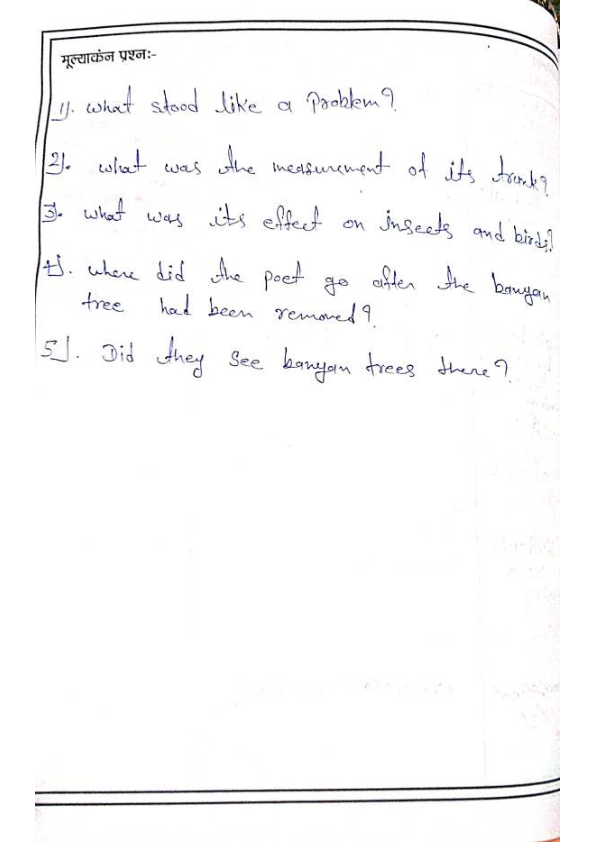 मूल्याकंन प्रश्नः-
1). what stood like a Problem?
2). what was the measurement of its trunk?
3). what was its effect on insects and birds?
4). where did the poet go after the banyan
tree had been removed?
5). Did they See banyan trees there?